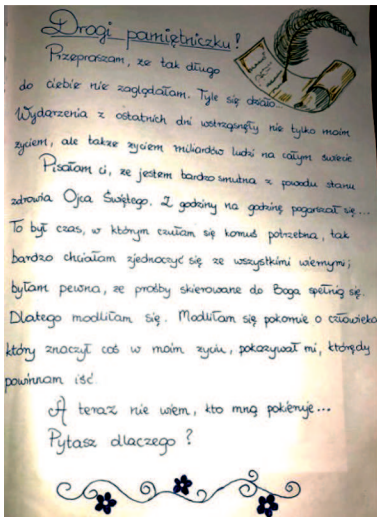 Drogi pamiętniczku!
Przepraszam, że tak długo
do ciebie nie zaglądałam. Tyle się działo...
Wydarzenia z ostatnich dni wstrząsnęły nie tylko moim
życiem, ale także życiem miliardów ludzi na całym świecie
Pisałam ci, że jestem bardzo smutna z powodu stanu
zdrowia Ojca Świętego. Z godziny na godzinę pogarszał się...
To był czas, w którym czułam się komuś potrzebna, tak
bardzo chciałam zjednoczyć się ze wszystkimi wiernymi;
byłam pewna, że prośby skierowane do Boga spełnią się.
Dlatego modliłam się. Modliłam się pokornie o człowieka
który znaczył coś w moim życiu, pokazywał mi, którędy
powinnam iść.
A teraz nie wiem, kto mną pokieruje...
Pytasz dlaczego?